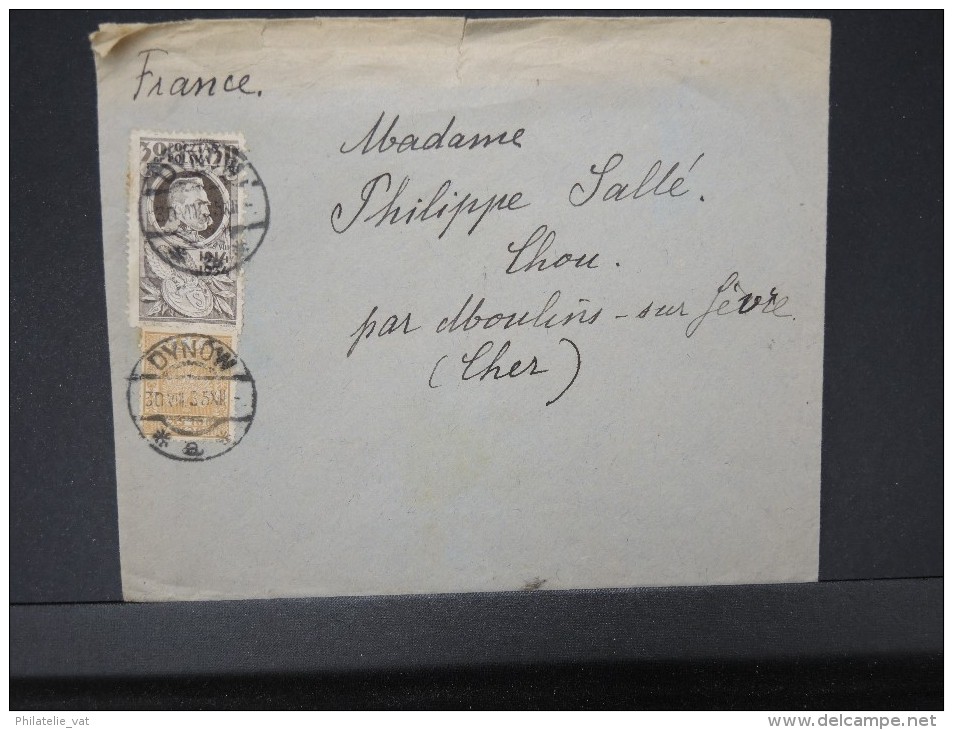 France.
Madame
Philippe Sallé.
Chou.
par Moulins-sur Yèvre.
(Cher)
30
POCZTA
POLSKA
DYNÓW
1914
1934
DYNÓW
30 VIII 35 XII
* a *
Philatelie_vat
www.delcampe.net